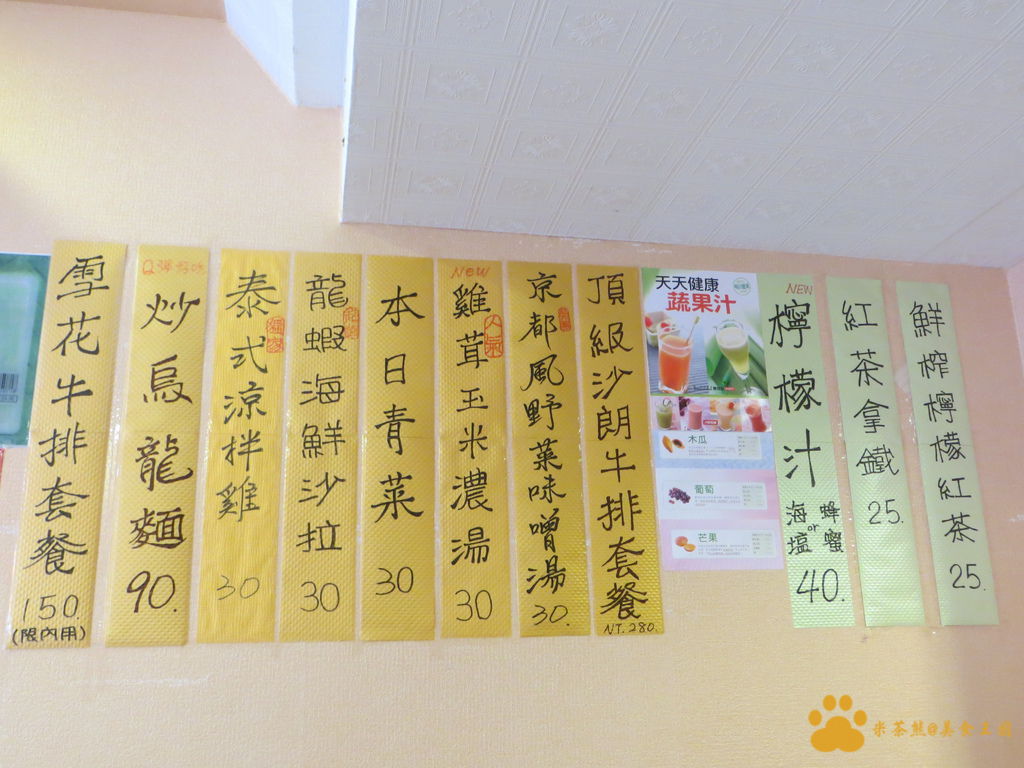 雪花牛排套餐
150.
(限內用)
炒烏龍麵
90.
泰式涼拌雞
30
龍蝦海鮮沙拉
30
本日青菜
30
NEW
人氣
雞茸玉米濃湯
30
京都風野菜味噌湯
30.
頂級沙朗牛排套餐
NT.280.
天天健康
蔬果汁
木瓜
葡萄
芒果
NEW
檸檬汁
海塩
or
蜂蜜
40.
紅茶拿鐵
25.
鮮榨檸檬紅茶
25.